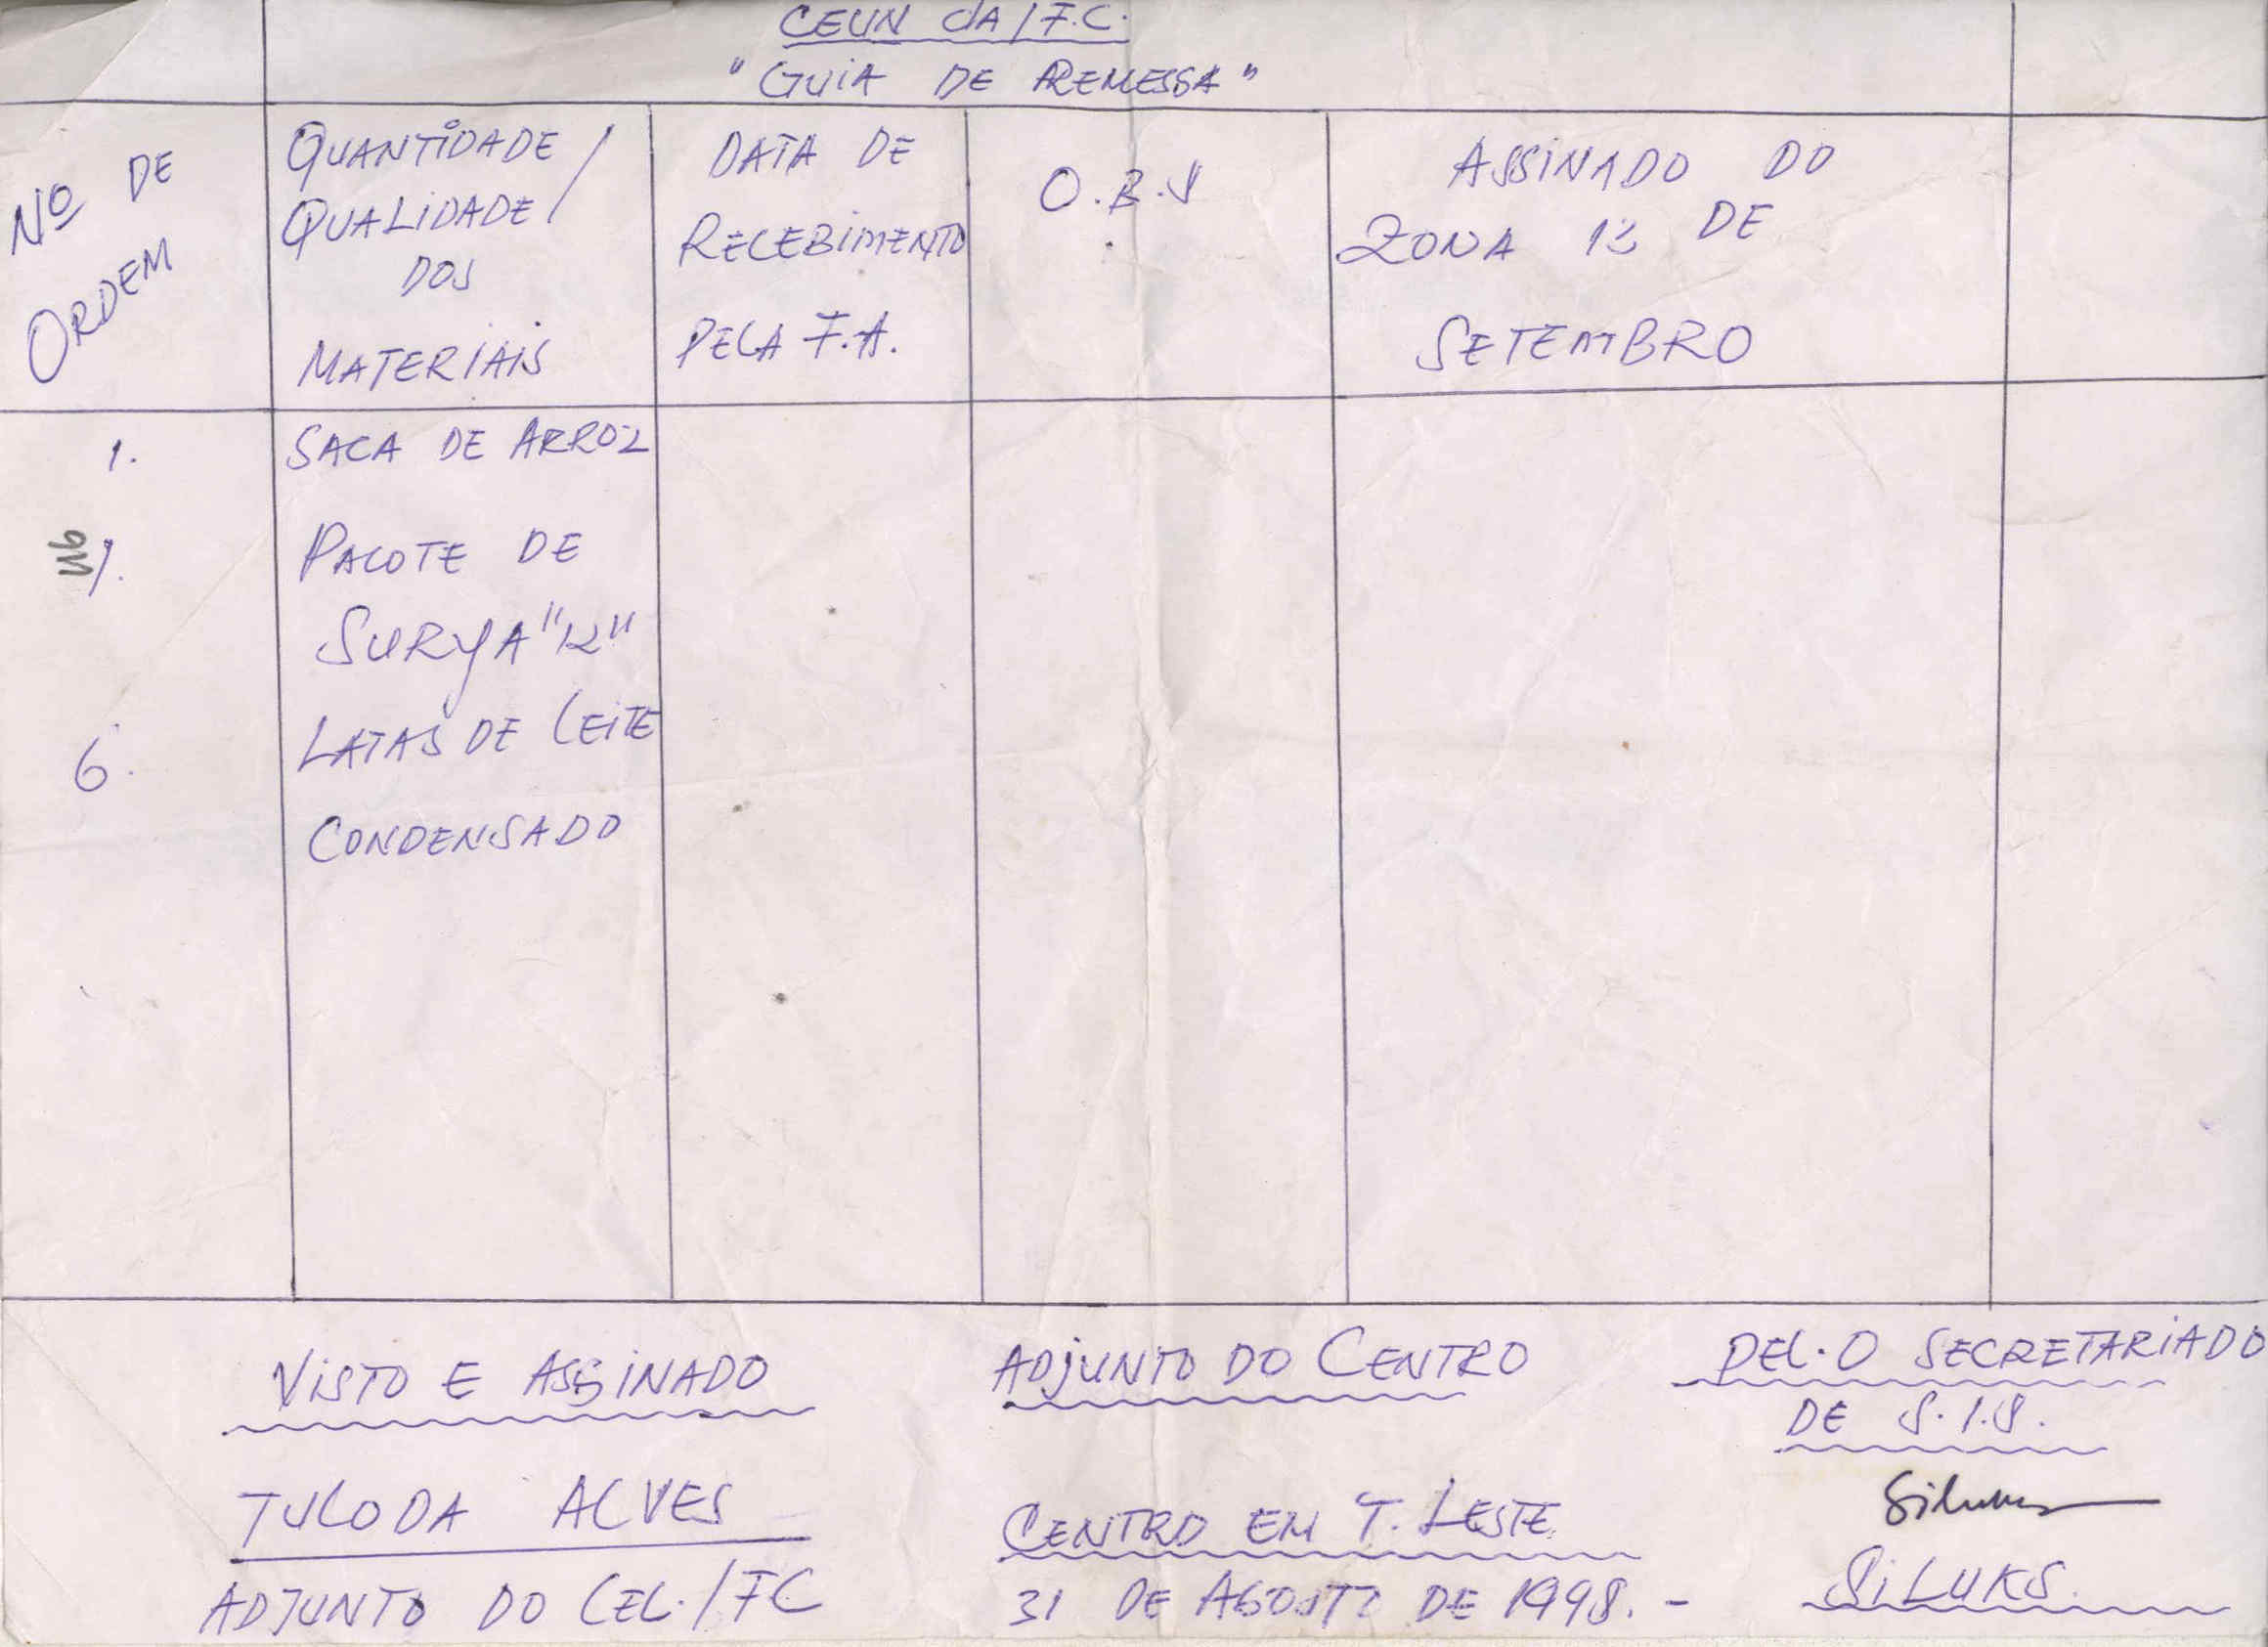 CEUN dA/F.C.
"GUiA DE REMESSA"
Nº DE
ORDEM
QUANTIDADE/
QUALIDADE/
DOS
MATERIAIS
DATA DE
RECEBIMENTO
PELA F.A.
O.B.S
ASSINADO DO
ZONA 12 DE
SETEMBRO
1.
SACA DE ARROZ
1.
PACOTE DE
SURYA "12"
6.
LATAS DE LEITE
CONDENSADO
VISTO E ASSINADO
TULODA ALVES
ADJUNTO DO CEL./FC
ADJUNTO DO CENTRO
CENTRO EM T. LESTE
31 DE AGOSTO DE 1998.-
PEL.O SECRETARIADO
DE S.I.S.
Siluks
SiLUKS